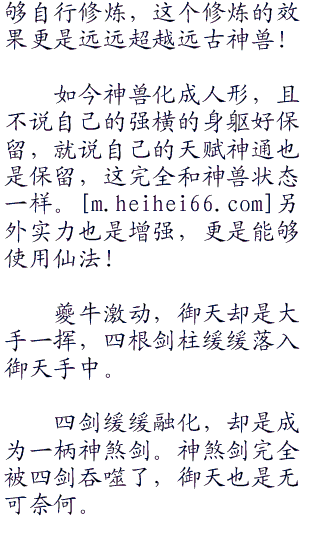 够自行修炼，这个修炼的效
果更是远远超越远古神兽！
如今神兽化成人形，且
不说自己的强横的身躯好保
留，就说自己的天赋神通也
是保留，这完全和神兽状态
一样。[m.heihei66.com]另
外实力也是增强，更是能够
使用仙法！
夔牛激动，御天却是大
手一挥，四根剑柱缓缓落入
御天手中。
四剑缓缓融化，却是成
为一柄神煞剑。神煞剑完全
被四剑吞噬了，御天也是无
可奈何。